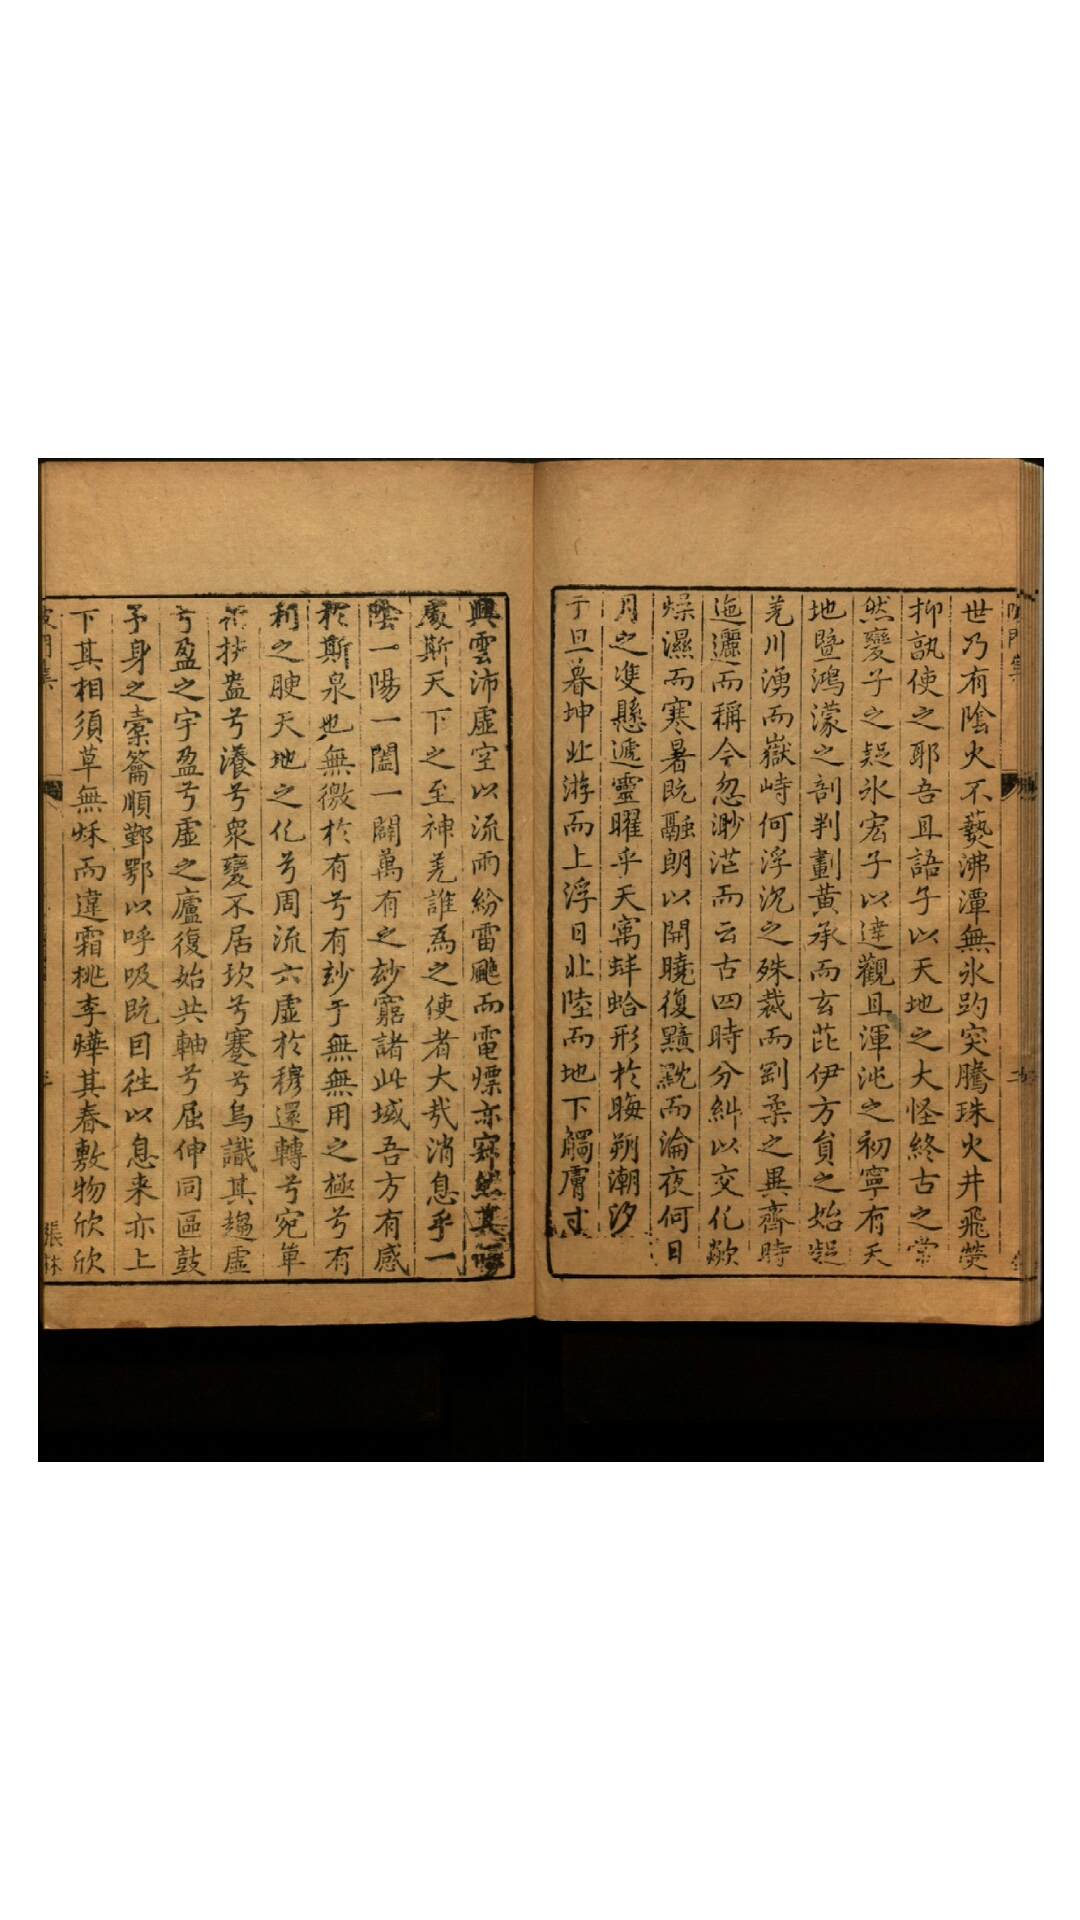 世乃有陰火不爇沸潭無氷趵突騰珠火井飛熒
抑孰使之耶吾且語子以天地之大怪終古之常
然變子之疑氷宏子以達觀且渾沌之初寧有天
地曁鴻濛之剖判劃黄承而玄芘伊方負之始凝
羗川湧而嶽峙何浮沉之殊裁而剛柔之異齊時
迤邐而稱今忽渺茫而云古四時分糾以交化歘
燥濕而寒暑旣融朗以開曉復黯黕而淪夜何日
月之䨇懸遞靈曜乎天寓蚌蛤形於晦朔潮汐
于旦暮坤北游而上浮日北陸而地下觸膚寸
興雲沛虛空以流雨紛雷颭而電熛亦
處斯天下之至神羗誰爲之使者大㢤消息乎一
陰一陽一闔一闢萬有之玅窮諸此域吾方有感
於斯泉也無徼於有兮有玅于無無用之極兮有
利之腴天地之化兮周流六虛於穆還轉兮宛單
挹益兮瀁兮衆變不居坎兮蹇兮烏識其趨虛
兮盈之宇盈兮虛之廬復始共軸兮屈伸同區鼓
予身之橐籥順鄞鄂以呼吸旣囙徃以息来亦上
下其相須草無秌而違霜桃李曄其春敷物欣欣
張